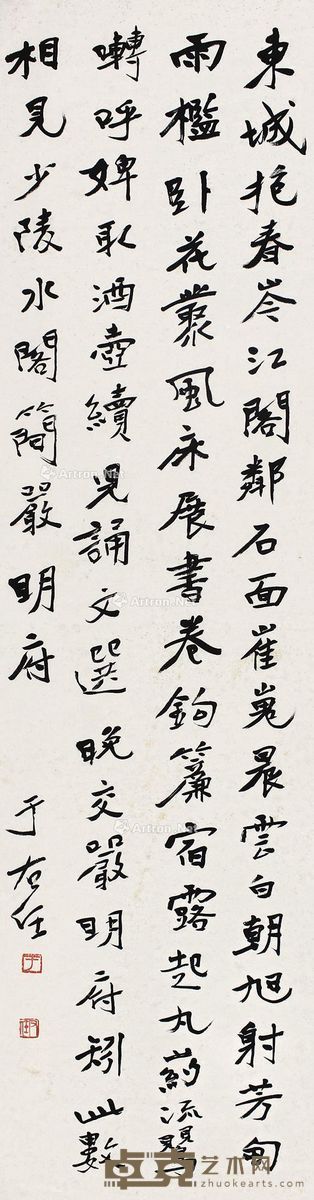 東城抱春岑江閣鄰石面崔嵬晨雲白朝旭射芳甸
雨檻卧花叢風床展書卷鉤簾宿露起丸葯流鶯
囀呼婢取酒壺續兒誦文選晚交嚴明府矧此數
相見少陵水閣簡嚴明府
于右任
Artron.Net
卓克艺术网
zhuokearts.com